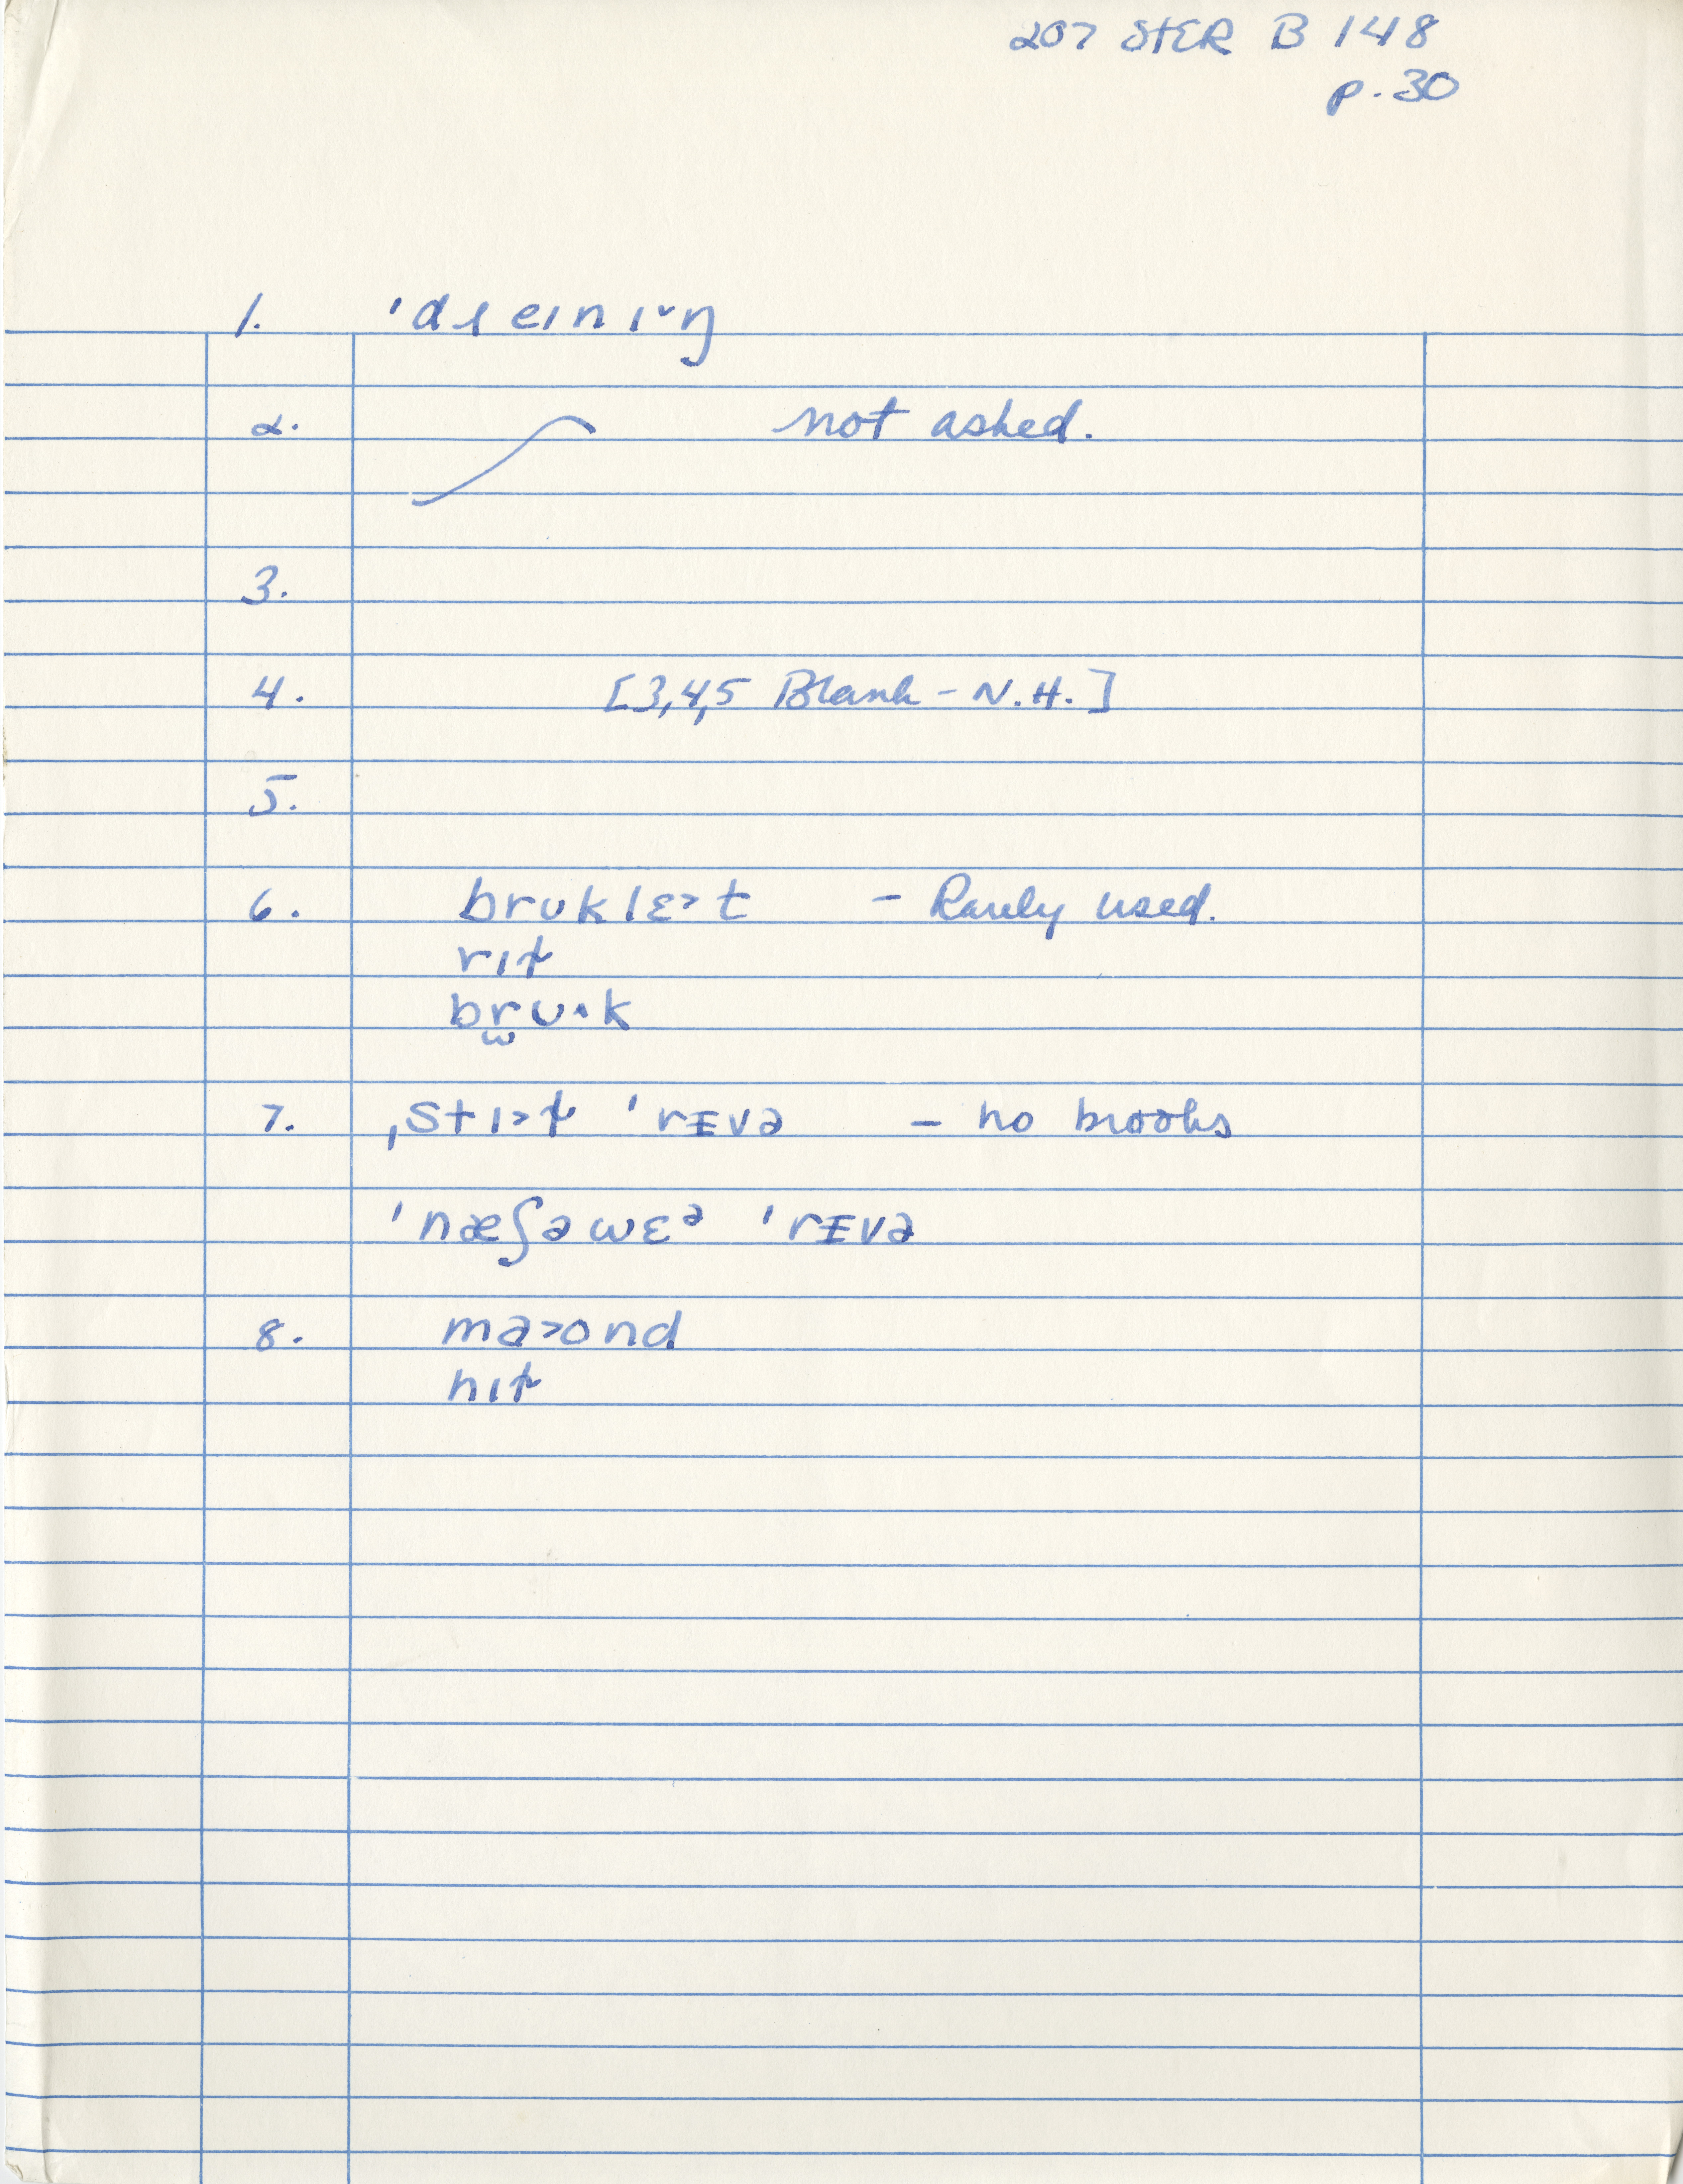 207 STER B 148
p. 30
1. ˈdɹeɪnɪ˅ŋ
2. not asked.
3.
4. [3,4,5 Blank - N.H.]
5.
6. brʊklɛ˃t - Rarely used.
rɪt̬
br̫ʊ˄k
7. ˌstɪ˃t̬ ˈrᵻvə - no brooks
ˈnæʃəwɛᵊ ˈrᵻvə
8. ma˃ʊnd
hɪt̬